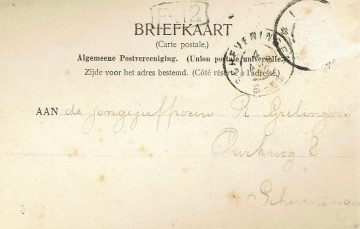 BRIEFKAART
(Carte postale.)
Algemeene Postvereeniging. (Union postale universelle.)
Zijde voor het adres bestemd. (Côté réservé à l'adresse.)
SCHEVENINGEN
AAN de jongejuffrouw R
Parkweg 8
Scheveningen